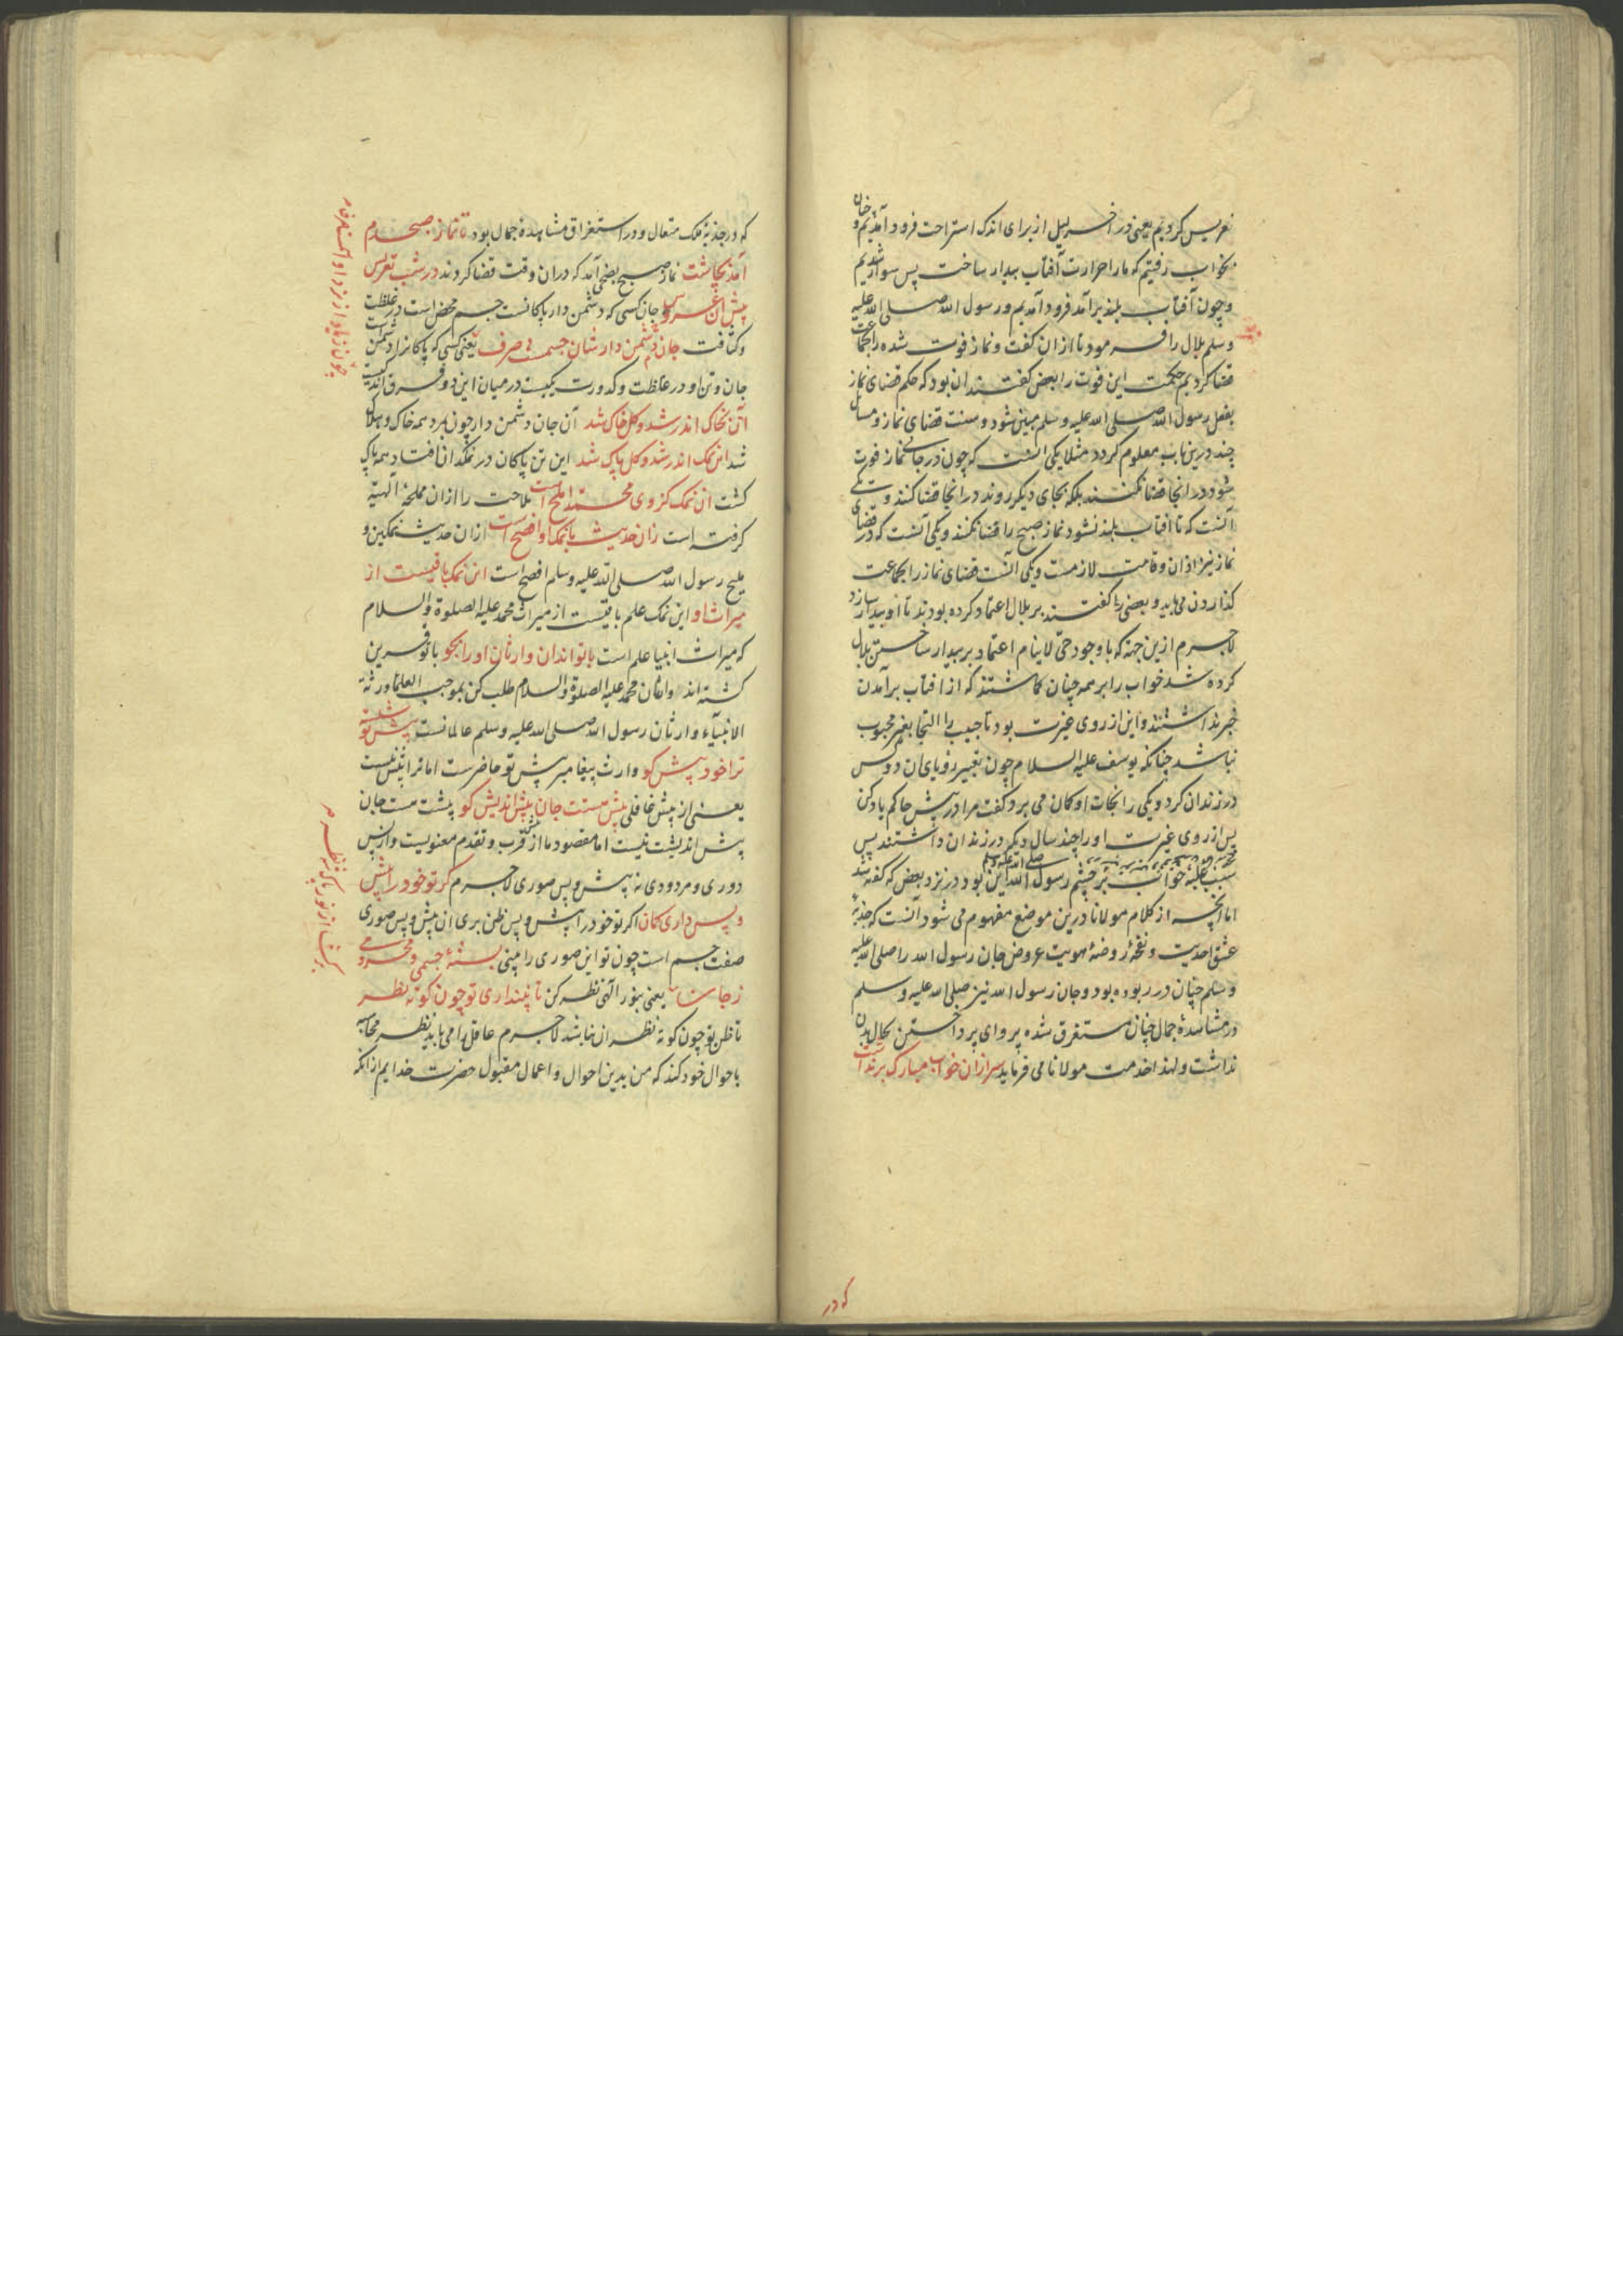 تعریس کردیم یعنی در آخر لیل از برای اندک استراحت فرود آمدیم و چنان
بخواب رفتیم که ما را حرارت آفتاب بیدار ساخت پس سوار شدیم
و چون آفتاب بلند برآمد فرود آمدیم و رسول الله صلی الله علیه
و سلم بلال را فرمود تا اذان گفت و نماز فوت شده را بجماعت
قضا کردیم حکمت این فوت را بعضی گفتند آن بود که حکم قضای نماز
بفعل رسول الله صلی الله علیه وسلم مبین شود و سنت قضای نماز و مسائل
چند درین باب معلوم گردد مثلا یکی آنست که چون در جائی نماز فوت
شود در آنجا قضا نکنند بلکه بجای دیگر روند در آنجا قضا کنند و یکی
آنست که تا آفتاب بلند نشود نماز صبح را قضا نکنند و یکی آنست که در قضای
نماز نیز اذان و قامت لازمست و یکی آنست قضای نماز را بجماعت
گذاردن می باید و بعضی گفتند بر بلال اعتماد کرده بودند تا او بیدار سازد
لاجرم ازین جهة که با وجود حیّ لاینام اعتماد بر بیدار ساختن بلال
کرده شد خواب را بر همه چنان گماشتند که از آفتاب برآمدن
خبر نداشتند و این از روی غیرت بود تا حبیب را التجا بغیر محبوب
نباشد چنانکه یوسف علیه السلام چون تعبیر رؤیای آن دو کس
در زندان کرد و یکی را نجات او گمان می برد گفت مرا در پیش حاکم یاد کن
پس از روی غیرت او را چند سال دیگر در زندان داشتند پس
سبب غلبه خواب بر چشم رسول الله صلی الله علیه وسلم این بود در نزد بعض که گفته شد
اما آنچه از کلام مولانا درین موضع مفهوم می شود آنست که جذبهٔ
عشق احدیت و نفحهٔ روضهٔ هویت عروض جان رسول الله را صلی الله علیه
و سلم چنان در ربوده بود و جان رسول الله نیز صلی الله علیه و سلم
در مشاهدهٔ جمال چنان مستغرق شده پروای پرداختن بحال بدن
نداشت و لهذا خدمت مولانا می فرماید سر ازان خواب مبارک برنداشت
که در
که در جذبهٔ ملک متعال و در استغراق مشاهدهٔ جمال بود تا نماز صبحدم
آمد بچاشت نماز صبح بضحی آمد که دران وقت قضا کردند در شب تعریس
پیش آن عروس جان کسی که دشمن دار پاکانست جسم محض است در غلظت
و کثافت جان دشمن دارشان جسمست صرف یعنی کسی که پاکانرا دشمن است
جان و تن او در غلظت و کدورت یکیست در میان این دو فرق اندکیست
آن بخاک اندر شد و کل خاک شد آن جان دشمن دار چون مرد همه خاک و هلاک
شد این نمک اندر شد و کل پاک شد این تن پاکان در نمکدان افتاد همه پاک
گشت آن نمک کز وی محمد املح است ملاحت را ازان مملحهٔ الهیّه
گرفته است زان حدیث با نمک او افصح است ازان حدیث نمکین و
ملیح رسول الله صلی الله علیه وسلم افصح است این نمک باقیست از
میراث او این نمک علم باقیست از میراث محمد علیه الصلوة والسلام
که میراث انبیا علم است با تو اند آن وارثان او را بجو با تو قرین
گشته اند وارثان محمد علیه الصلوة والسلام طلب کن بموجب العلماء ورثة
الانبیاء وارثان رسول الله صلی الله علیه وسلم عالمانست پیش تو شسته
ترا خود پیش کو وارث پیغامبر پیش تو حاضرست اما ترا پیش نیست
یعنی از پیش غافلی پیش هستت جان پیش اندیش کو پیشت هست جان
پیش اندیشت نیست اما مقصود ما از پیش قرب و تقدم معنویست و از پس
دوری و مردودی نه پیش و پس صوری لاجرم گر تو خود را پیش
و پس داری گمان اگر تو خود را پیش و پس ظن بری آن پیش و پس صوری
صفت جسم است چون تو این صوری را بینی بستهٔ جسمی و محرومی
ز جان یعنی بنور الهی نظر کن تا نپنداری تو چون کوته نظر
تا ظن تو چون کوته نظران نباشد لاجرم عاقل را می باید نظر محاسبه
باحوال خود کند که من بدین احوال و اعمال مقبول حضرت خدایم از آنکه
برگشا از نور پاک نظر